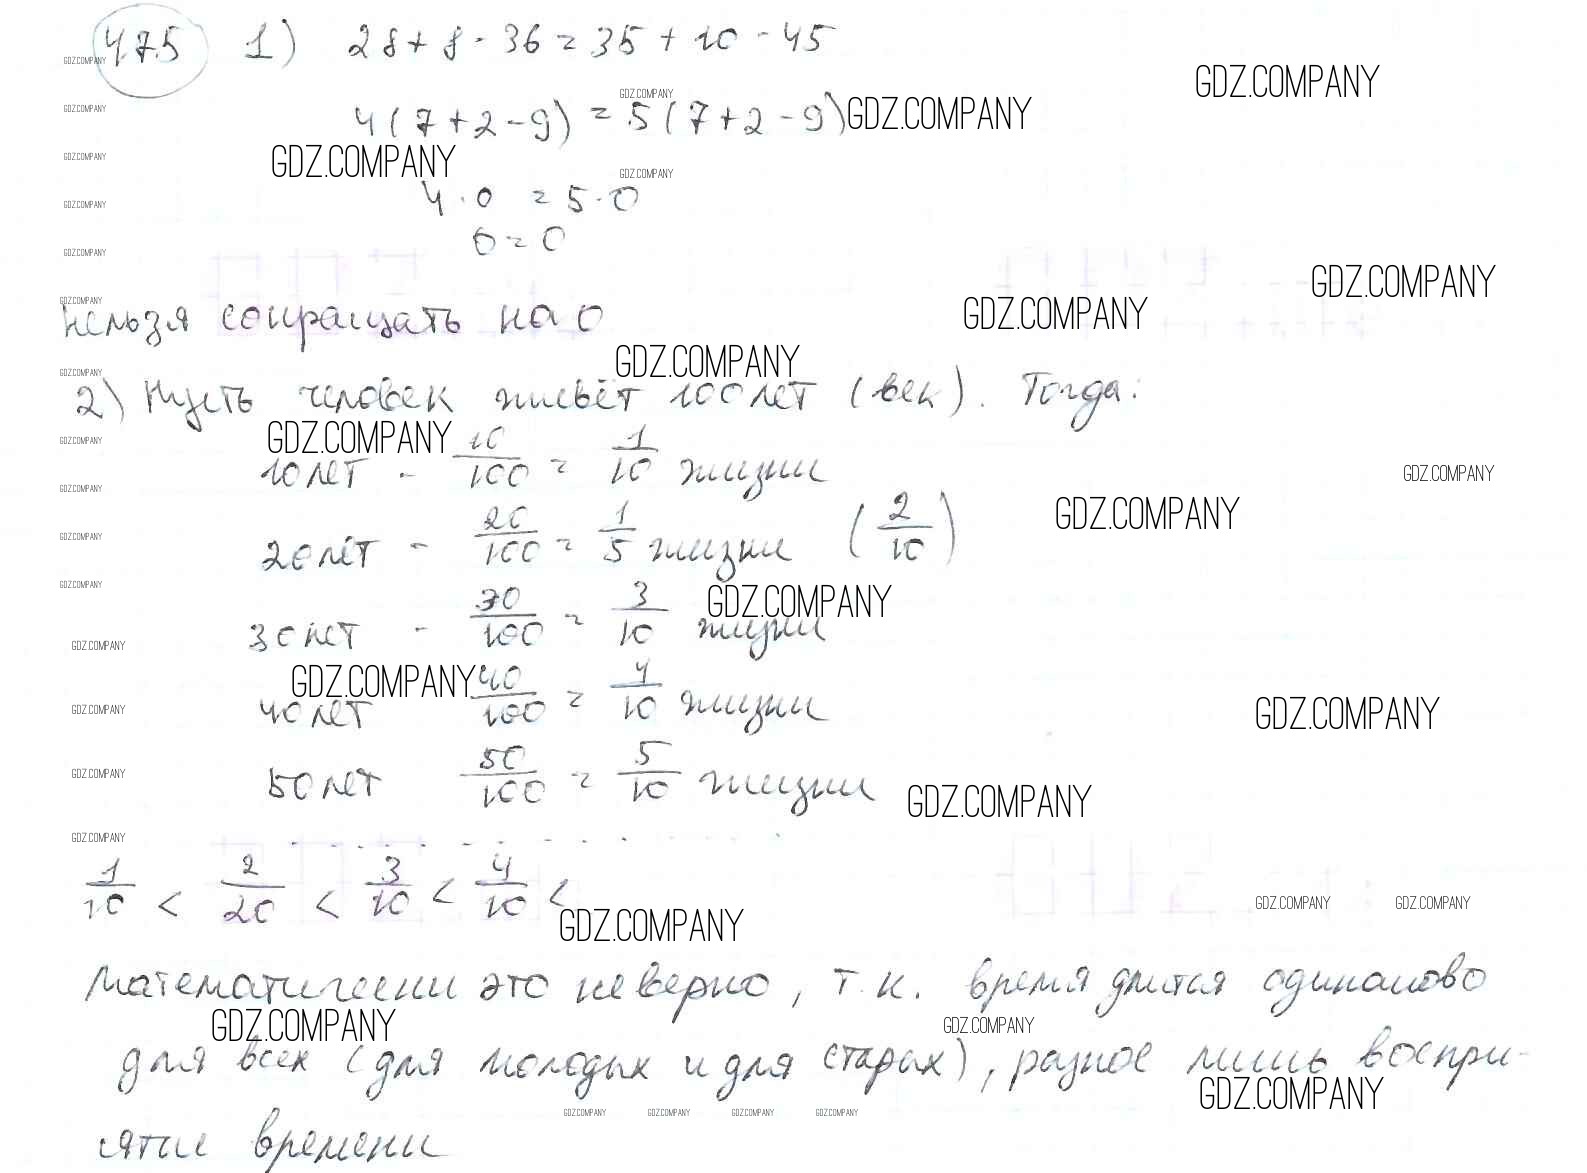 475 1) 28 + 8 - 36 = 35 + 10 - 45
4(7+2-9) = 5(7+2-9)
4·0 = 5·0
0 = 0
нельзя сокращать на 0
2) Пусть человек живёт 100 лет (век). Тогда:
10 лет - 10/100 = 1/10 жизни
20 лет - 20/100 = 1/5 жизни (2/10)
30 лет - 30/100 = 3/10 жизни
40 лет 40/100 = 4/10 жизни
50 лет 50/100 = 5/10 жизни
1/10 < 2/20 < 3/10 < 4/10 <
математически это неверно, т.к. время длится одинаково
для всех (для молодых и для старых), разное лишь воспри-
ятие времени
GDZ.COMPANY